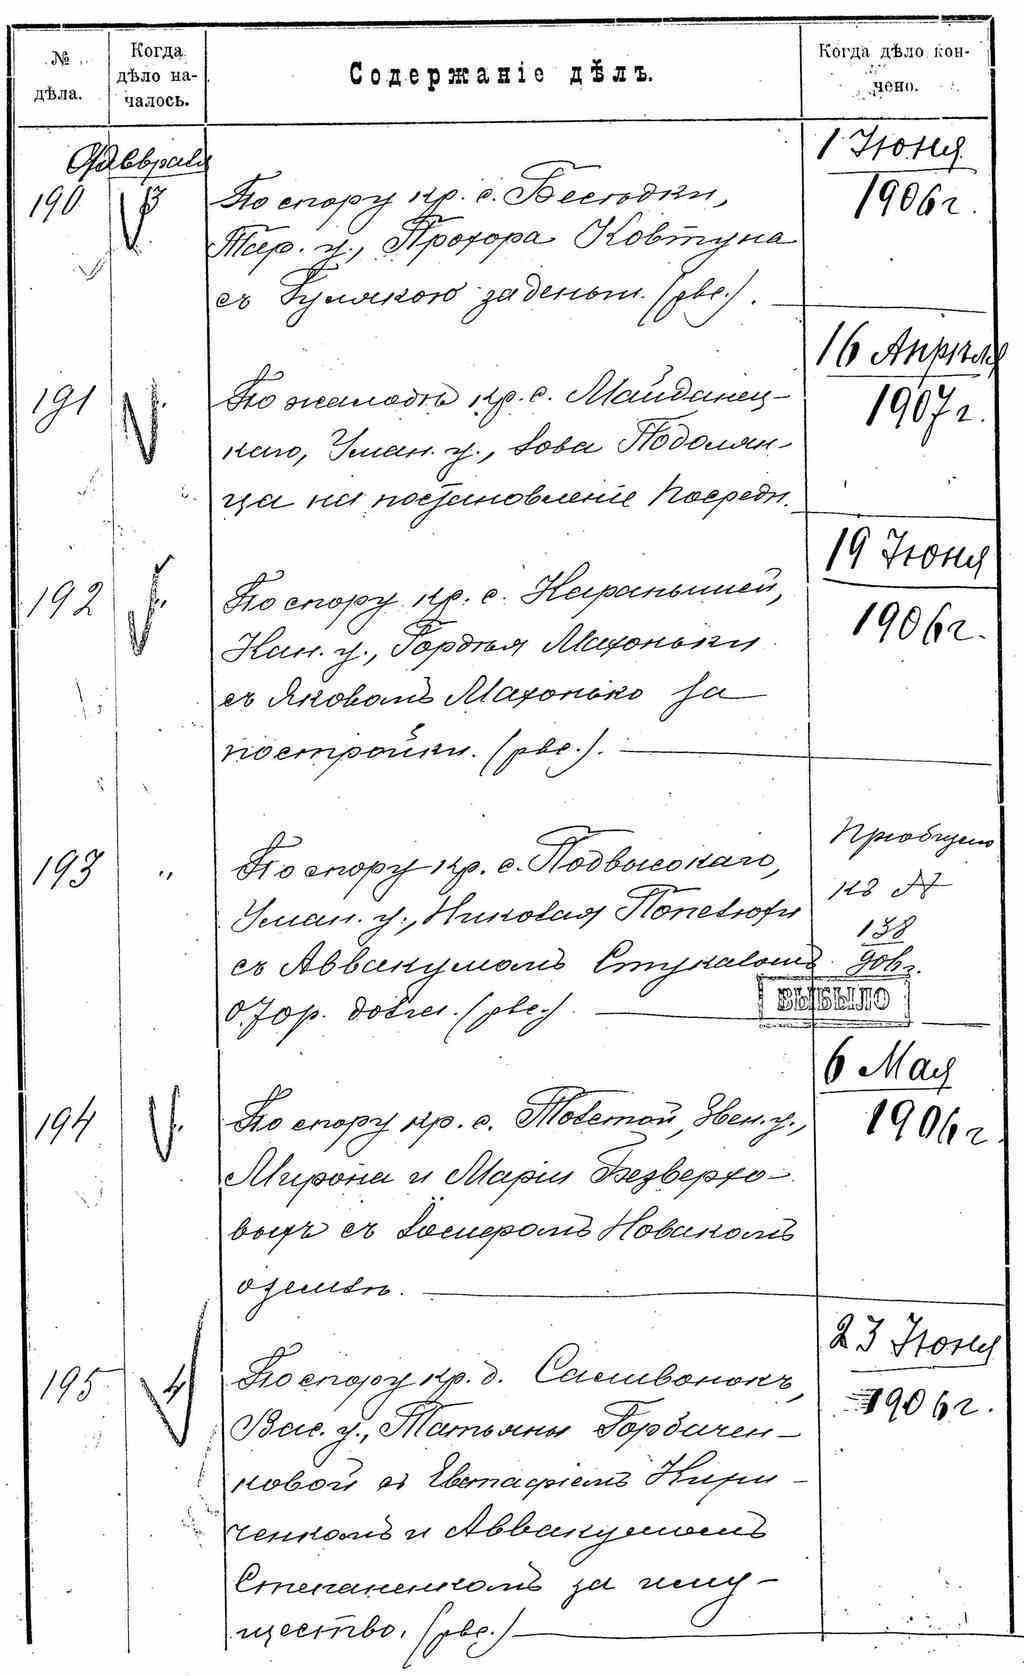 № дѣла.
Когда дѣло на-
чалось.
Содержаніе дѣлъ.
Когда дѣло кон-
чено.
Февраля
190
3
По спору кр. с. Бесѣдки,
Тар. у., Прохора Ковтуна
съ Гулякою за деньги. (рвс.).
1 Іюня
1906 г.
191
По жалобѣ кр. с. Майданец-
каго, Уман. у., Іова Подолян-
ца на постановленіе Посредн.
16 Апрѣля
1907 г.
192
По спору кр. с. Карапышей,
Кан. у., Гордѣя Махоньки
съ Яковомъ Махонько за
постройки. (рвс.).
19 Іюня
1906 г.
193
"
По спору кр. с. Подвысокаго,
Уман. у., Николая
съ Аввакумомъ
(рвс.)
Пріобщено
къ №
138
906 г.
ВЫБЫЛО
194
По спору кр. с. Толстой, Звен. у.,
Мирона и Маріи Безверхо-
выхъ съ Іосифомъ Новакомъ
о землѣ.
6 Мая
1906 г.
195
4
По спору кр. д. Саливонокъ,
Вас. у., Татьяны Горбачен-
ковой съ Евстафіемъ Кири-
ченкомъ и Аввакумомъ
Степаненкомъ за иму-
щество. (рвс.)
23 Іюня
1906 г.